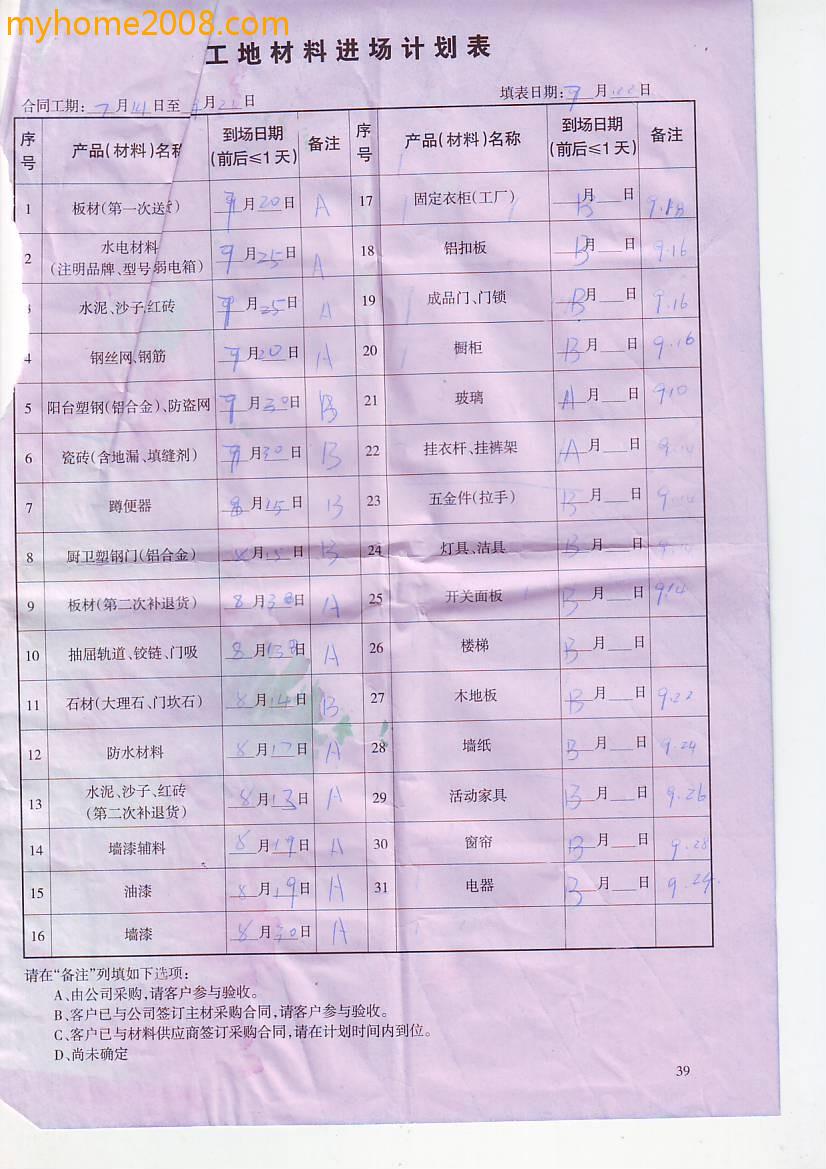 myhome2008.com
工地材料进场计划表
合同工期: 7月14日至 月21日
填表日期: 月 日
序号 产品(材料)名称 到场日期(前后≤1天) 备注 序号 产品(材料)名称 到场日期(前后≤1天) 备注
1 板材(第一次送货) 月20日 A 17 固定衣柜(工厂) B月 日
2 水电材料(注明品牌、型号弱电箱) 月25日 A 18 铝扣板 B月 日 9.16
水泥、沙子、红砖 月25日 A 19 成品门、门锁 B月 日 9.16
4 钢丝网、钢筋 月20日 A 20 橱柜 B月 日 9.16
5 阳台塑钢(铝合金)、防盗网 月30日 B 21 玻璃 A月 日 910
6 瓷砖(含地漏、填缝剂) 月30日 B 22 挂衣杆、挂裤架 A月 日
7 蹲便器 8月15日 B 23 五金件(拉手) B月 日
8 厨卫塑钢门(铝合金) 8月15日 B 24 灯具、洁具 B月 日
9 板材(第二次补退货) 8月 日 A 25 开关面板 B月 日 9.14
10 抽屉轨道、铰链、门吸 8月13日 A 26 楼梯 B月 日
11 石材(大理石、门坎石) 8月14日 B 27 木地板 B月 日 9.22
12 防水材料 8月17日 A 28 墙纸 B月 日 9.24
13 水泥、沙子、红砖(第二次补退货) 8月13日 A 29 活动家具 B月 日 9.26
14 墙漆辅料 8月19日 A 30 窗帘 B月 日 9.28
15 油漆 8月19日 A 31 电器 B月 日 9.29.
16 墙漆 8月30日 A
请在“备注”列填如下选项:
A、由公司采购,请客户参与验收。
B、客户已与公司签订主材采购合同,请客户参与验收。
C、客户已与材料供应商签订采购合同,请在计划时间内到位。
D、尚未确定
39